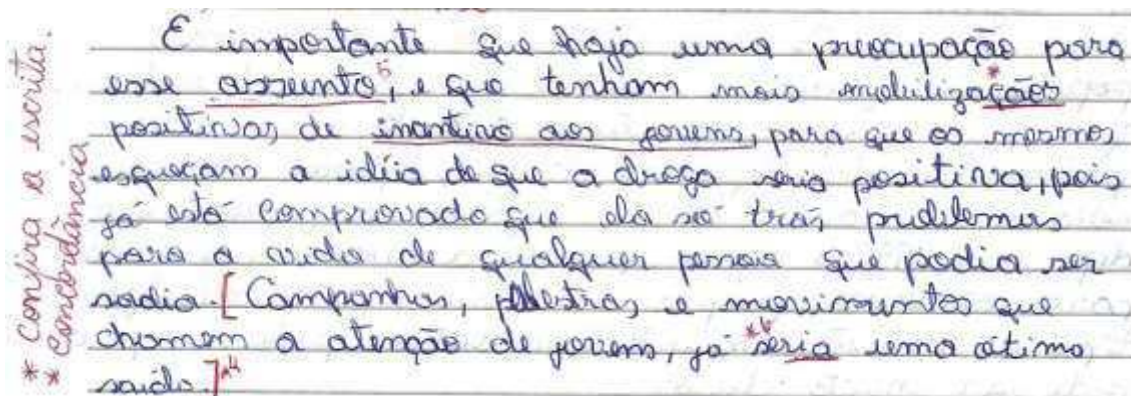 * Confira a escrita.
* Concordância
É importante que haja uma preocupação para
esse assunto,⁵ e que tenham mais mobilizaçãos*
positivas de incentivo aos jovens, para que os mesmos
esqueçam a idéia de que a droga seria positiva, pois
já está comprovado que ela só tras problemas
para a vida de qualquer pessoa que podia ser
sadia. [Campanhas, palestras e movimentos que
chamem a atenção de jovens, já *⁶ seria uma ótima
saída.]*⁴